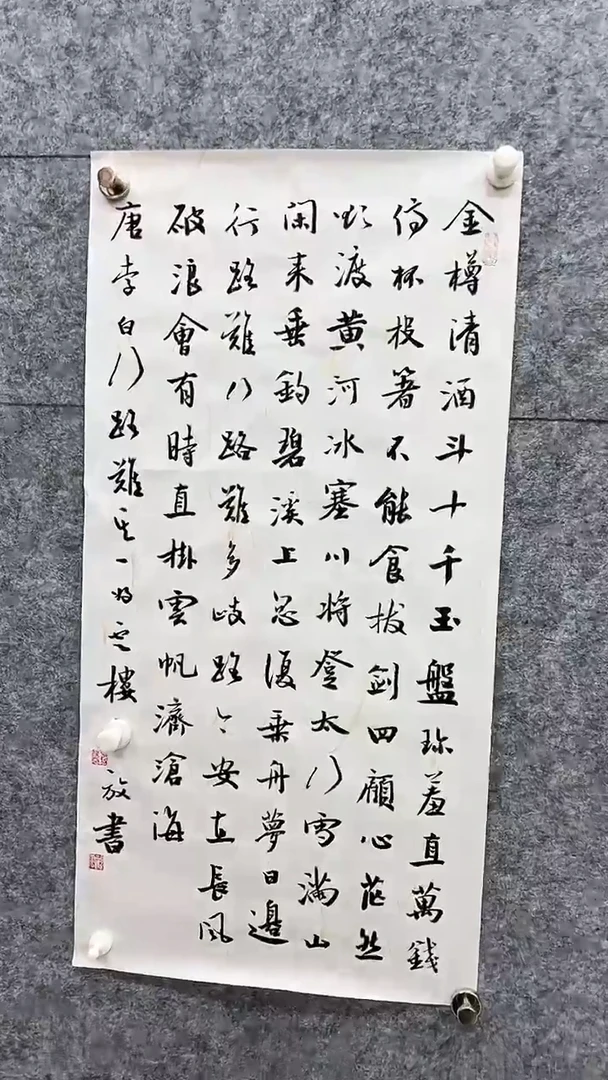 金樽清酒斗十千玉盤珎羞直萬錢
停杯投箸不能食拔劍四顧心茫然
欲渡黄河冰塞川將登太行雪滿山
閑来垂釣碧溪上忽復乗舟夢日邊
行路難行路難多歧路今安在長風
破浪會有時直掛雲帆濟滄海
唐李白行路難其一樓放書